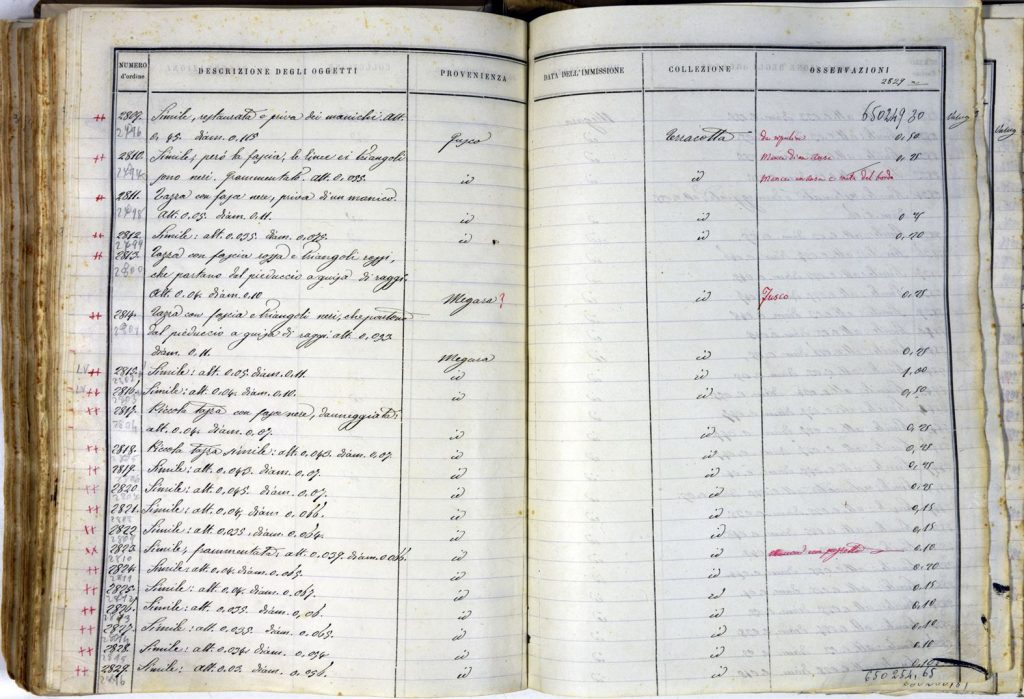 NUMERO d'ordine DESCRIZIONE DEGLI OGGETTI PROVENIENZA DATA DELL'IMMISSIONE COLLEZIONE OSSERVAZIONI
2829
650249 30
2809 Simile, restaurata e priva dei manichi. Alt.
0,45. diam. 0,165 Fusco Terracotta 0,50
2810 Simile, però la fascia, le linee ed i triangoli 0,25
sono neri. Frammentata. Alt. 0,055. id id
2811 Tazza con fasce nere, priva di un manico.
Alt. 0,05. diam. 0,11. id id 0,25
2812 Simile: alt. 0,035. diam. 0,075. id id 0,20
2813 Tazza con fascia rossa e triangoli rossi,
che partono dal pieduccio a guisa di raggi.
Alt. 0,04. diam. 0,10 Megara ? id Fusco 0,25
2814 Tazza con fascia e triangoli neri, che partono
dal pieduccio a guisa di raggi. alt. 0,033
diam. 0,11. Megara id 0,25
2815 Simile: alt. 0,05. diam. 0,11. id id 1,00
2816 Simile: alt. 0,04. diam. 0,10. id id 0,50
2817 Piccola tazza con fasce nere, danneggiata:
alt. 0,04. diam. 0,07. id id 0,25
2818 Piccola tazza simile: alt. 0,043. diam. 0,07 id id 0,25
2819 Simile: alt. 0,043. diam. 0,07. id id 0,25
2820 Simile: alt. 0,045. diam. 0,07. id id 0,25
2821 Simile: alt. 0,04. diam. 0,066. id id 0,15
2822 Simile: alt. 0,035. diam. 0,064. id id 0,15
2823 Simile, frammentata: alt. 0,039. diam. 0,066. id id 0,10
2824 Simile: alt. 0,04. diam. 0,065. id id 0,20
2825 Simile: alt. 0,04. diam. 0,067. id id 0,15
2826 Simile: alt. 0,035. diam. 0,06. id id 0,10
2827 Simile: alt. 0,035. diam. 0,065. id id 0,10
2828 Simile: alt. 0,034. diam. 0,054. id id 0,10
2829 Simile: alt. 0,03. diam. 0,056. id id 0,10
650254,65